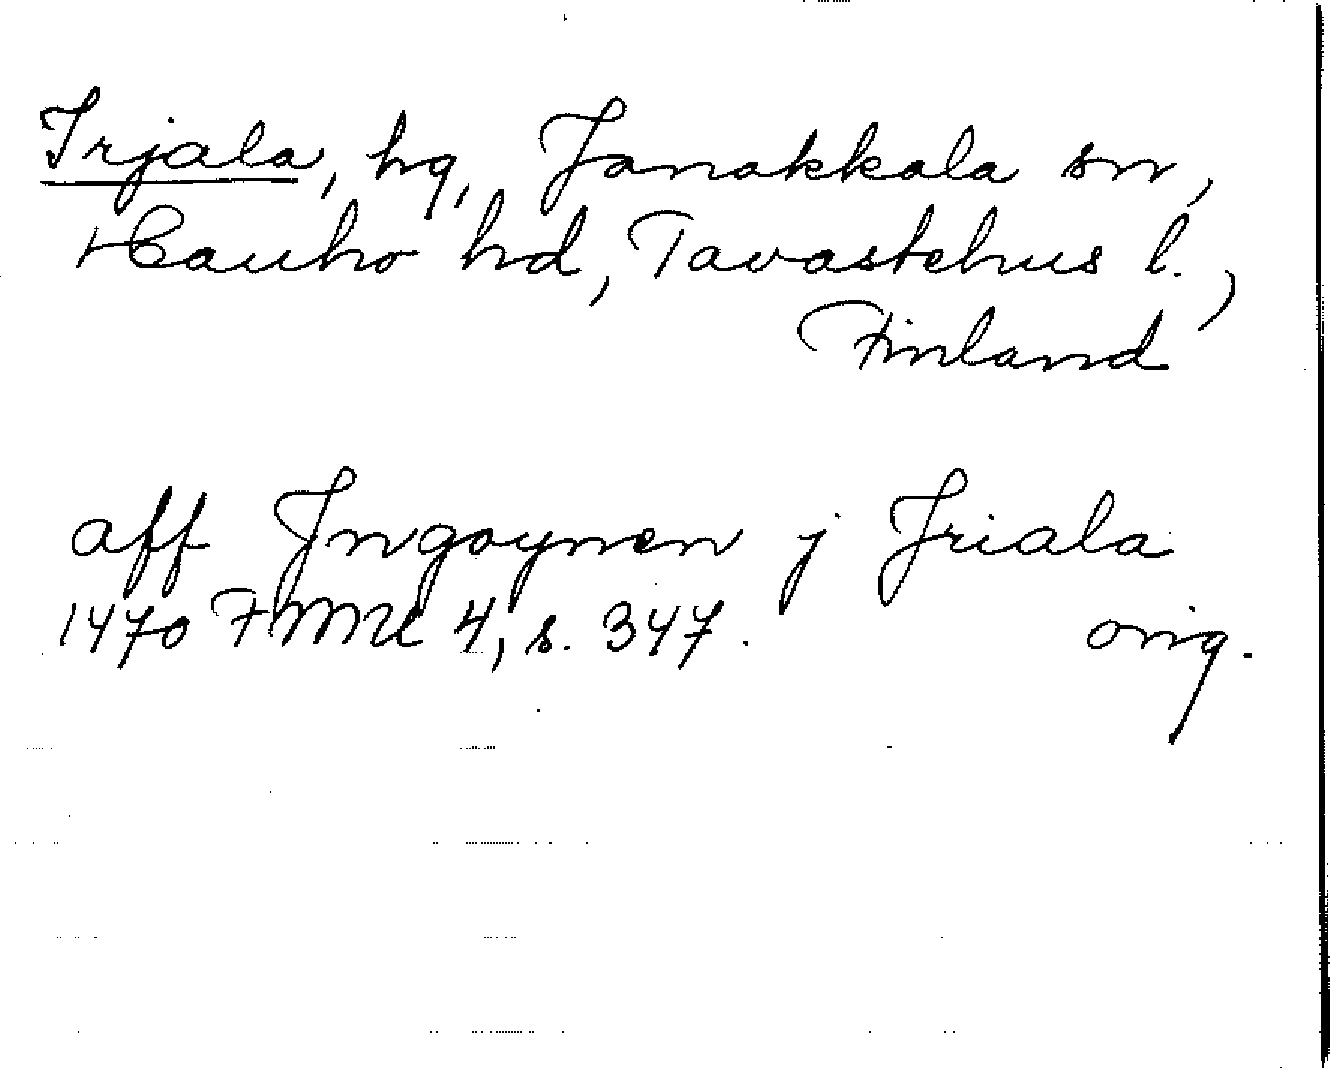 Irjala, hg, Janakkala sn,
Hauho hd, Tavastehus l.,
Finland
aff Jngoynen j Jriala
1470 FMU 4, s. 347.
orig.